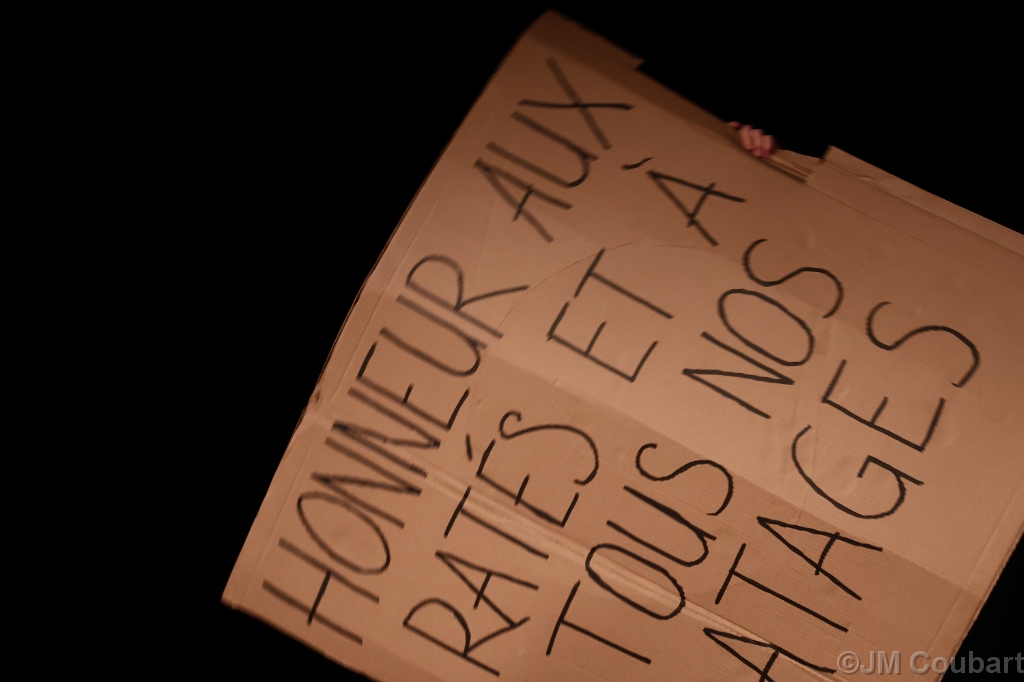 HONNEUR AUX
RATÉS ET À
TOUS NOS
ATAGES
©JM Coubart